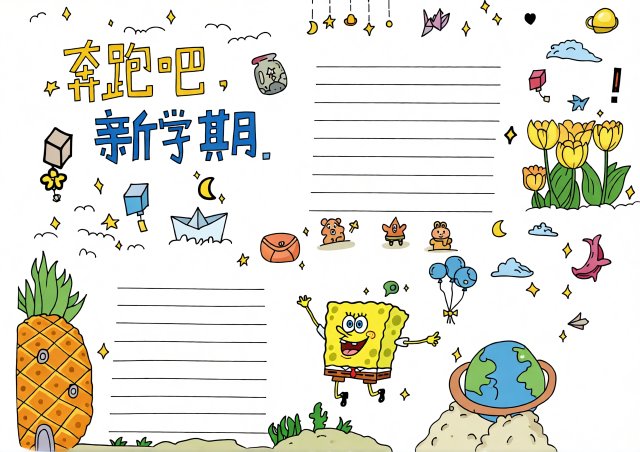 奔跑吧，
新学期.